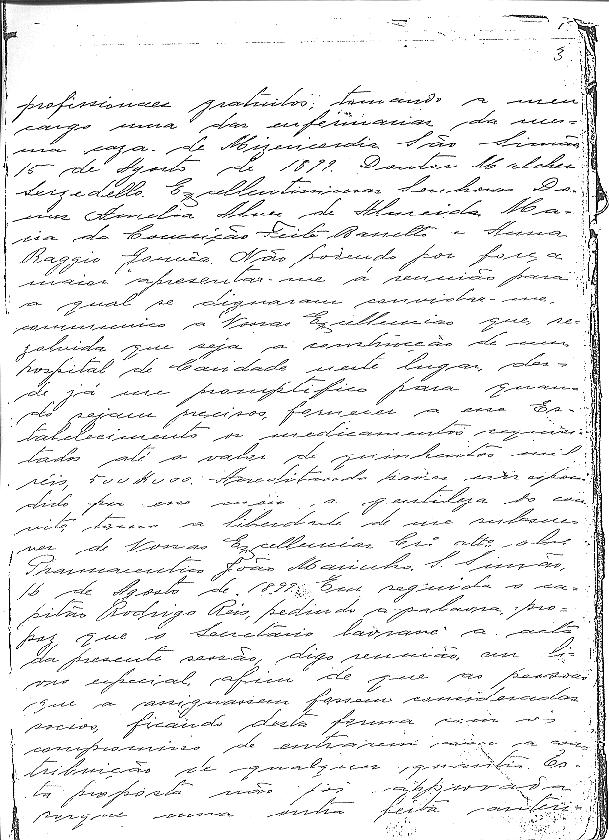 3
profissionaes gratuitos, tomando a meu
cargo uma das enfermarias da mes-
ma caza de Mizericordia São Simão
15 de Agosto de 1899. Doutor
Serzedello. Excellentissimas Senhoras Do-
nas Amelia Alves de Almeida, Ma-
ria da Conceição Leite Barretto e Anna
Baggio Não podendo por força
maior apresentar-me á reunião para
a qual se dignaram convidar-me,
communico a Vossas Excellencias que, re-
zolvida que seja a construcção de um
hospital de Caridade neste lugar, des-
de já me promptifico para quan-
do sejam precisos, fornecer a esse Es-
tabelecimento os medicamentos
até o valor de quinhentos mil
reis, 500$000. Acreditando haver
dido por esse meio a gentileza do con-
vite, tomo a liberdade de me subscre-
ver de Vossas Excellencias
Pharmaceutico João Marinho. S. Simão,
16 de Agosto de 1899. Em seguida o ca-
pitão Rodrigo Reis, pedindo a palavra, pro-
poz que o Secretario lavrasse a acta
da presente sessão, digo reunião, em li-
vro especial, afim de que as pessoas
que a assignassem fossem consideradas
socios, ficando desta forma com o
compromisso de entrarem com a con-
tribuição de qualquer quantia. Es-
ta proposta não foi approvada
porque uma outra feita anteri-